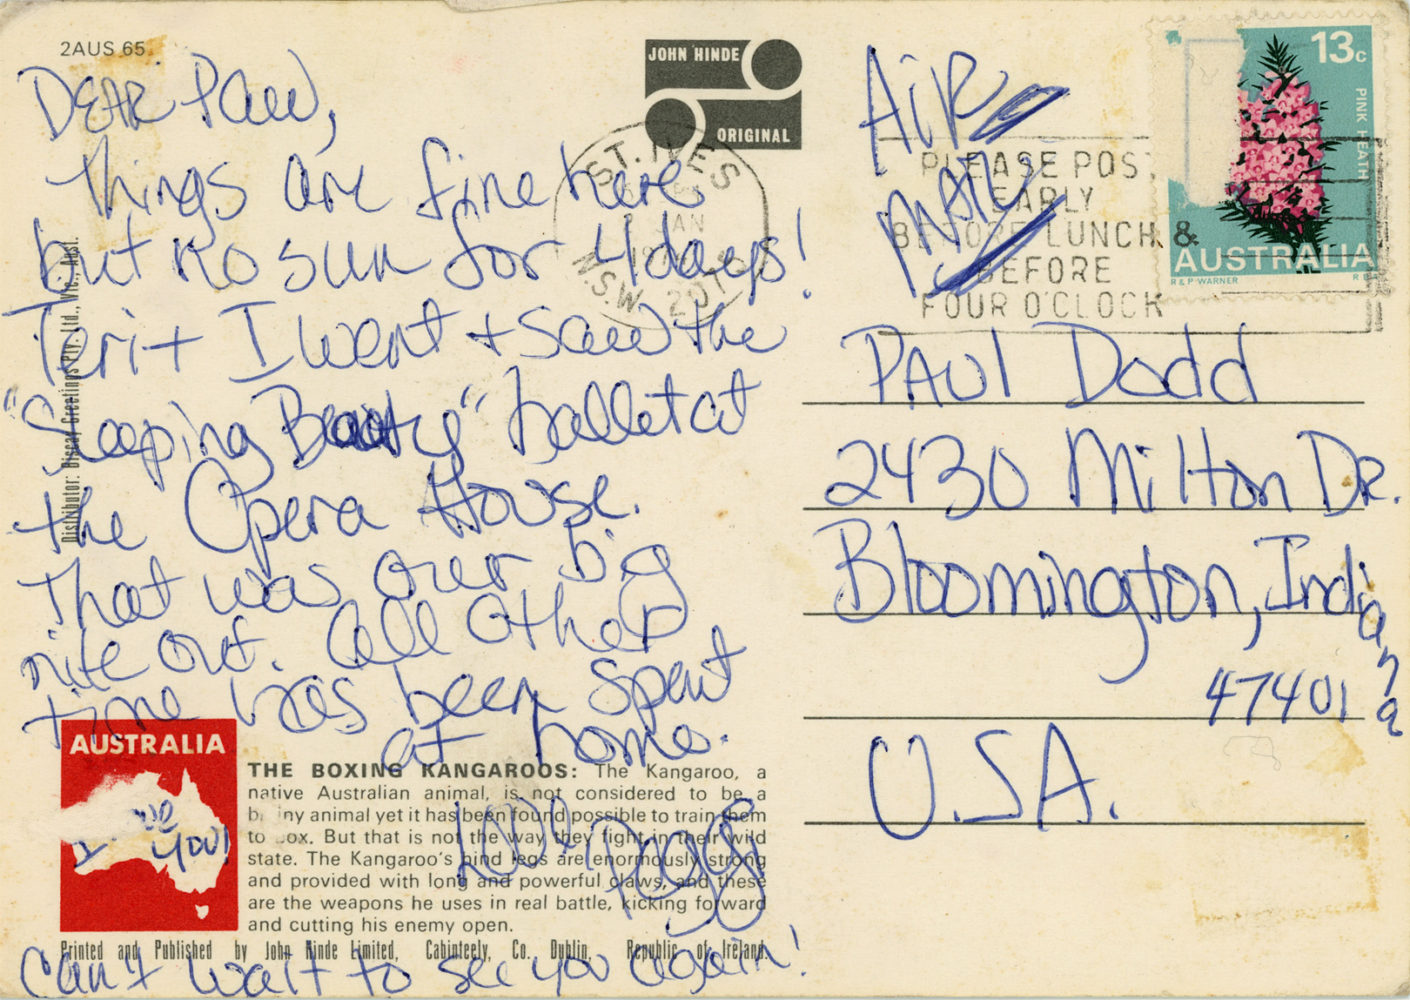 2AUS 65.
DEAR Paw,
things are fine here
but no sun for 4 days!
Teri + I went + saw the
"Sleeping Beauty" ballet at
the Opera House.
That was our big
nite out. All other
time has been spent
at home.
Love
Pegg
Can't wait to see you again!
JOHN HINDE
ORIGINAL
ST. IVES
JAN
N.S.W. 207
AIR
MAIL
PLEASE POST
EARLY
BEFORE LUNCH &
BEFORE
FOUR O'CLOCK
13c
PINK HEATH
AUSTRALIA
R & P WARNER
PAUl Dodd
2430 Milton DR.
Bloomington, Indiana
47401
U.S.A.
Distributor: Biscay Greetings Pty. Ltd., Vic., Aust.
AUSTRALIA
THE BOXING KANGAROOS: The Kangaroo, a
native Australian animal, is not considered to be a
b iny animal yet it has been found possible to train them
to box. But that is not the way they fight in their wild
state. The Kangaroo's hind legs are enormously strong
and provided with long and powerful claws, and these
are the weapons he uses in real battle, kicking forward
and cutting his enemy open.
Printed and Published by John Hinde Limited, Cabinteely, Co. Dublin, Republic of Ireland.